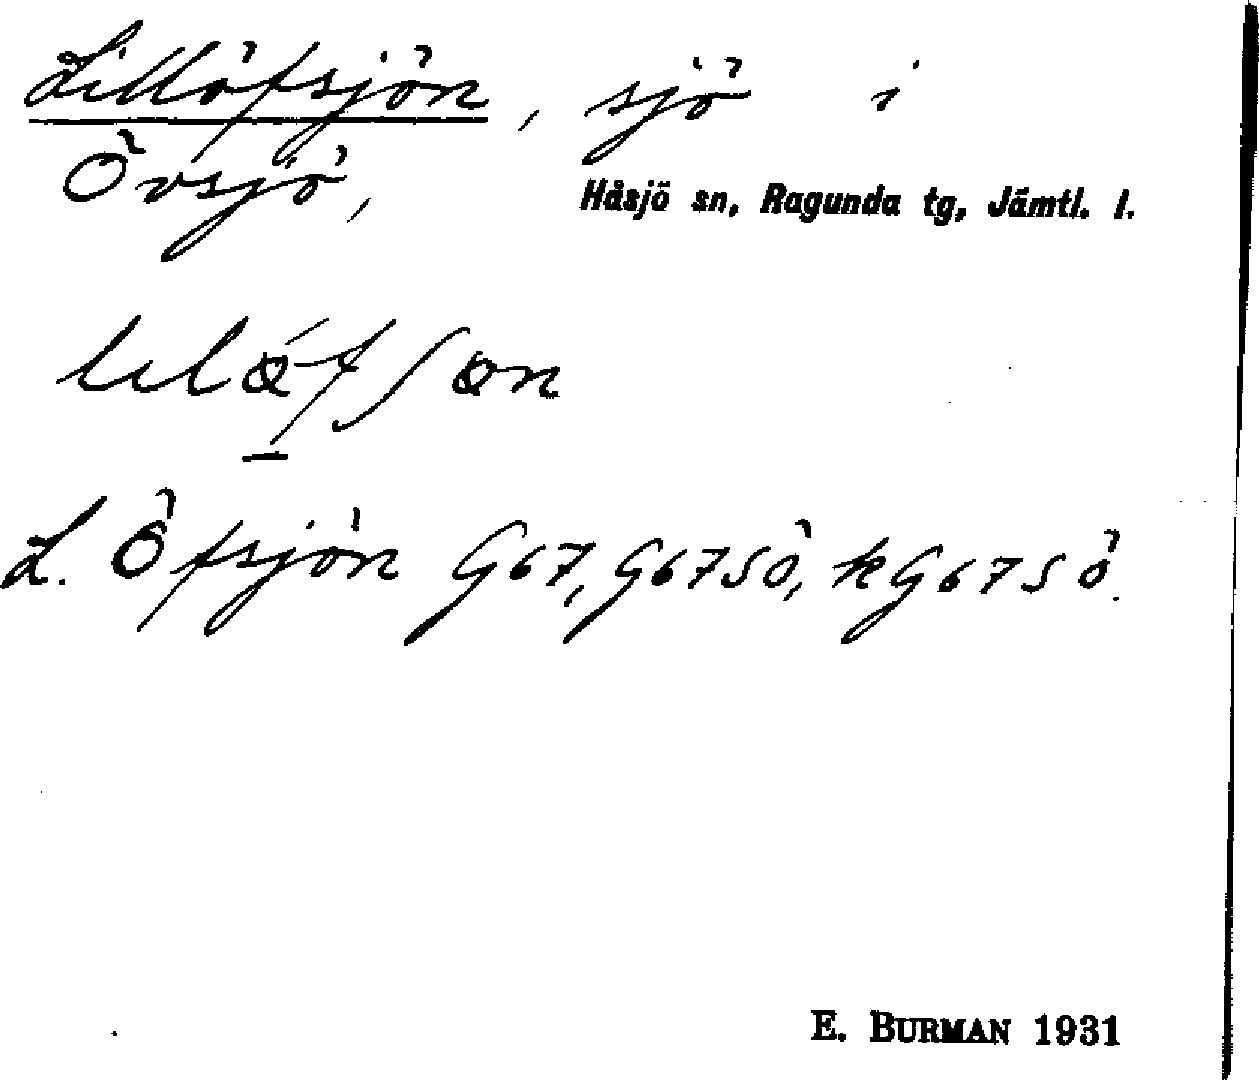 Lillöfsjön, sjö i
Övsjö, Håsjö sn, Ragunda tg, Jämtl. l.
L. Öfsjön G67, G67SÖ, kG67SÖ.
E. BURMAN 1931